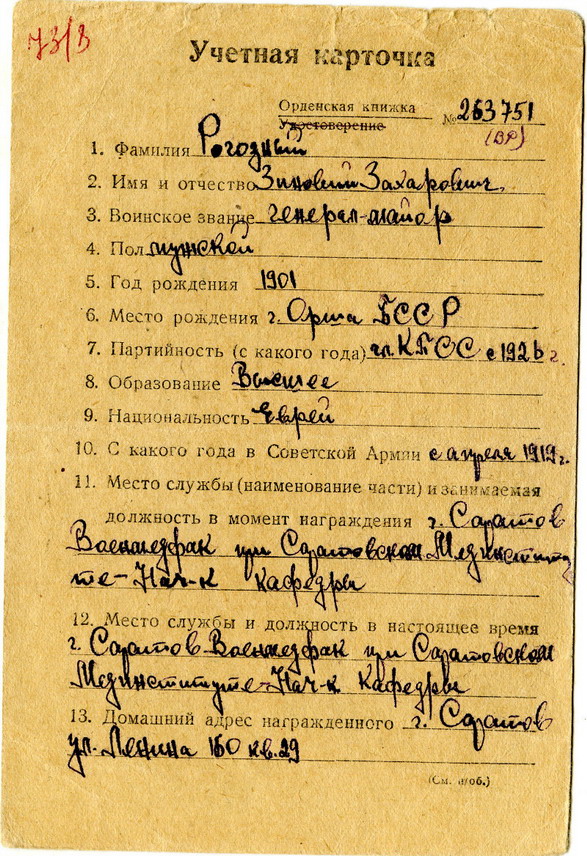 73/3
Учетная карточка
Орденская книжка
Удостоверение
№ 263751
(ВР)
1. Фамилия Рогозный
2. Имя и отчество Зиновий Захарович.
3. Воинское звание генерал-майор
4. Пол мужской
5. Год рождения 1901
6. Место рождения г. Орша БССР
7. Партийность (с какого года) чл. КПСС с 1926 г.
8. Образование Высшее
9. Национальность Еврей
10. С какого года в Советской Армии с апреля 1919 г.
11. Место службы (наименование части) и занимаемая
должность в момент награждения г. Саратов
Военмедфак при Саратовском Мединститу
те - Нач-к кафедры
12. Место службы и должность в настоящее время
г. Саратов Военмедфак при Саратовском
Мединституте - Нач-к кафедры
13. Домашний адрес награжденного г. Саратов
ул. Ленина 160 кв. 29
(См. н/об.)